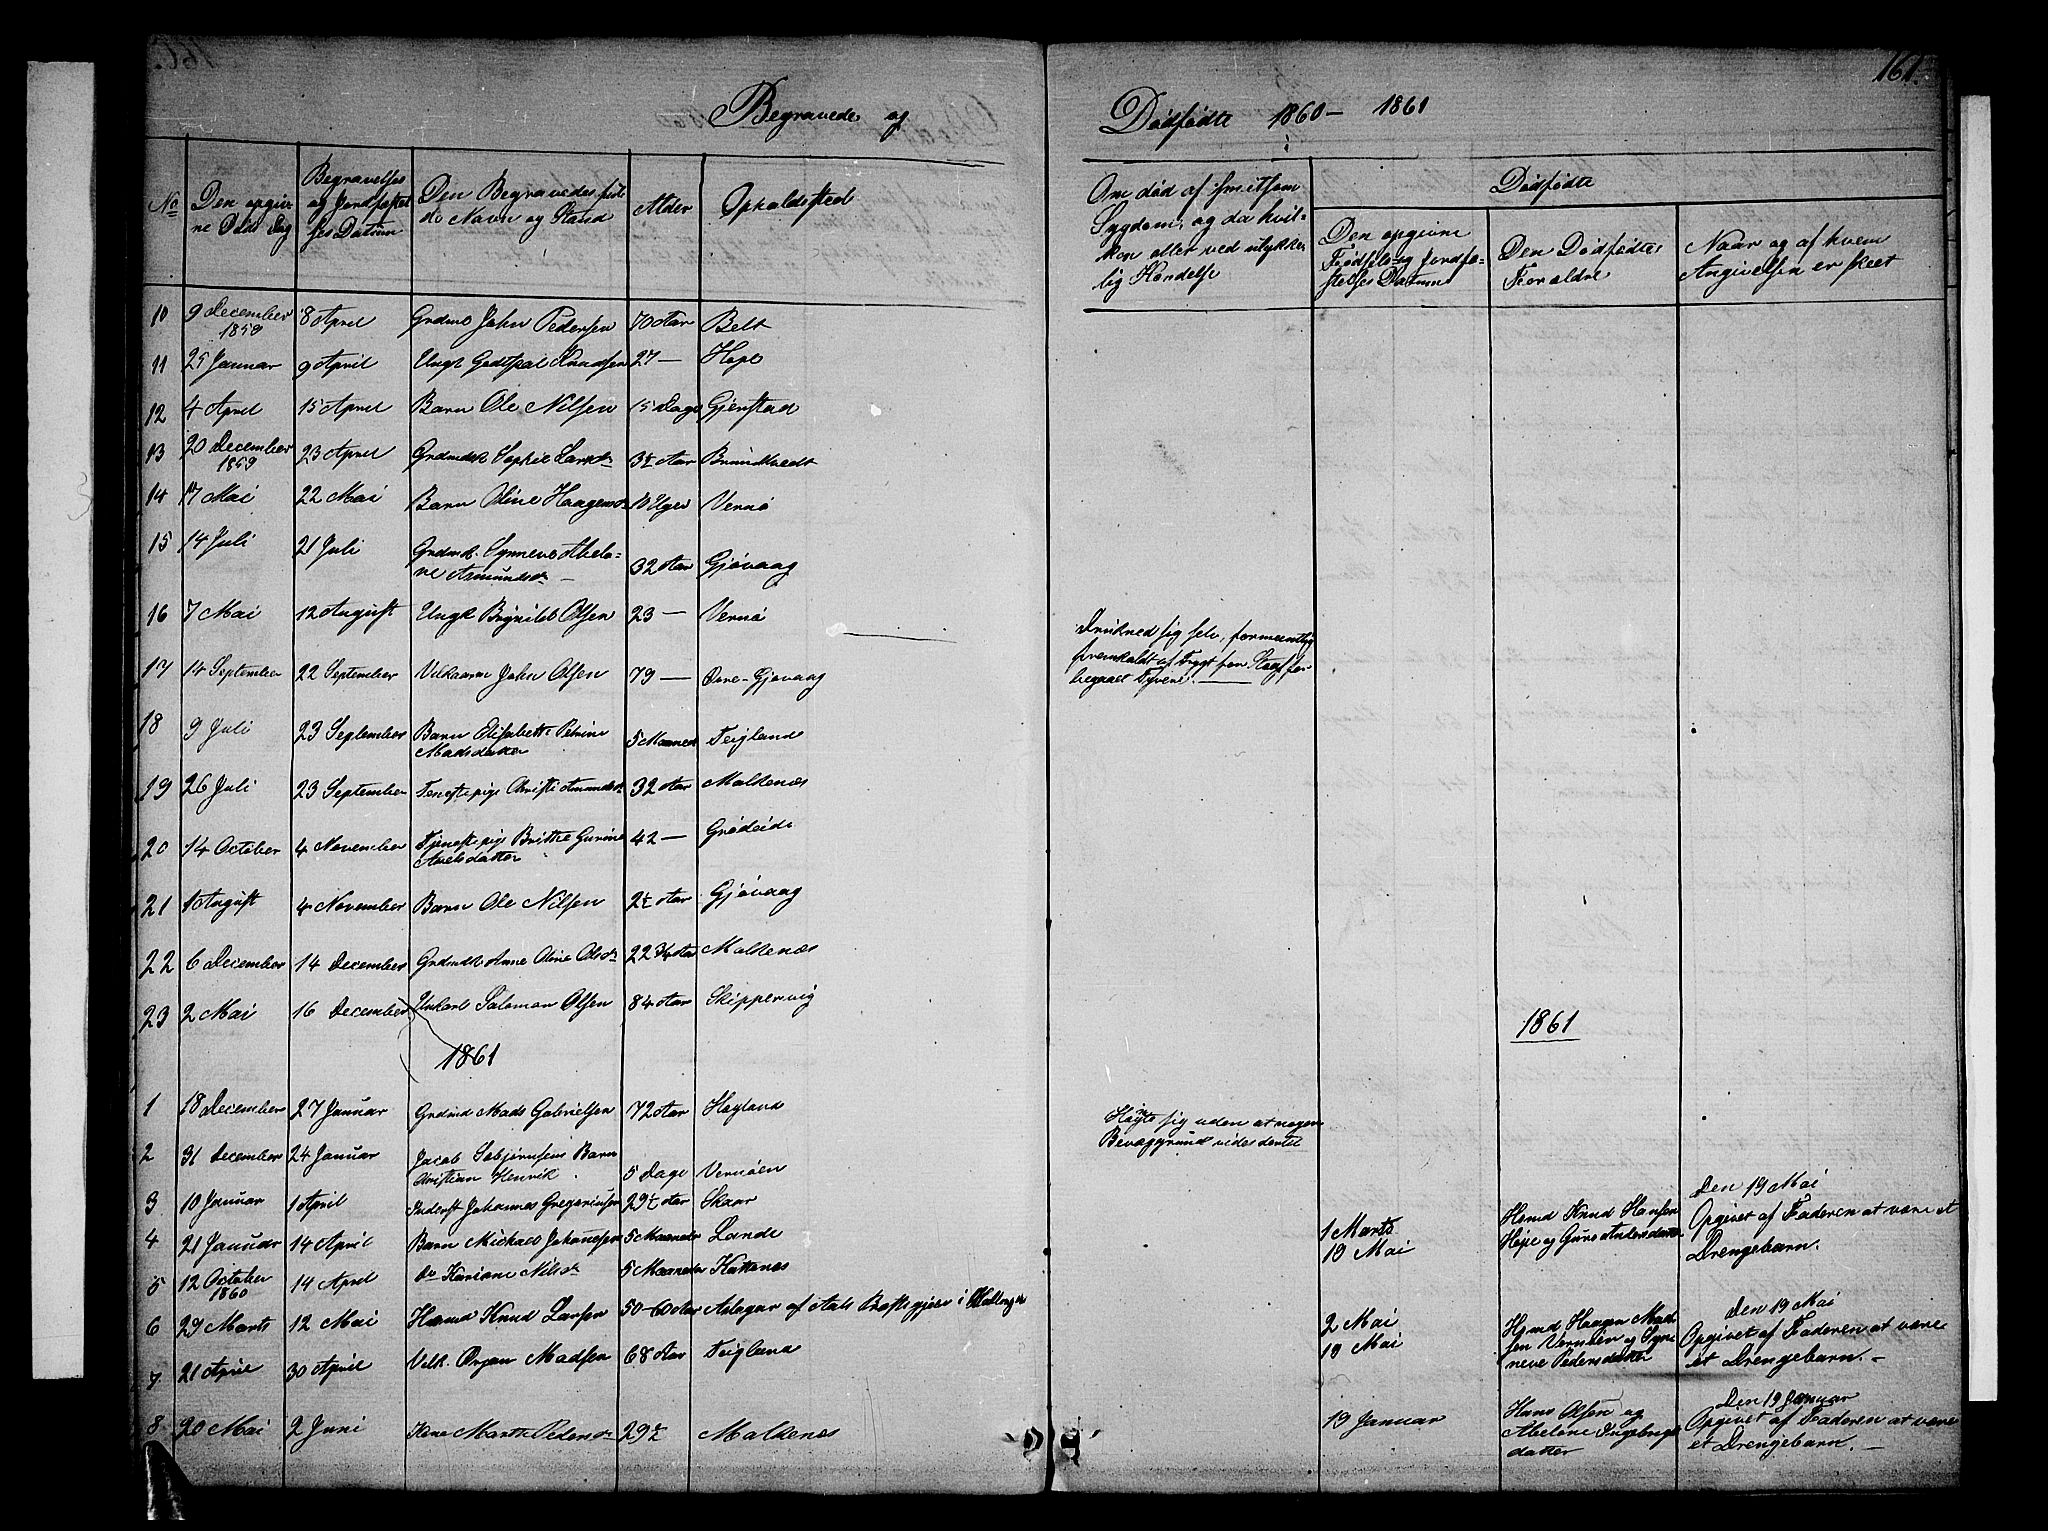 161.
Begravede og
Dødfødte 1860 - 1861
No
Den opgivne Døds Dag
Begravelses og Jordfæstelses Datum
Den Begravedes fulde Navn og Stand
Alder
Opholdssted
Om død af smitsom Sygdom, og da hvilken eller ved ulykkelig Hændelse
Dødfødte
Den opgivne Fødsels- og Jordfæstelses Datum
Den Dødfødtes Forældre
Naar og af hvem Angivelsen er skeet
10 9 December 1859 8 April Grdmd John Pedersen 70 Aar Belt
11 25 Januar 9 April Ungk Godtskal Knudsen 27 — Hope
12 4 April 15 April Barn Ole Nilsen 15 Dage Gjerstad
13 20 December 1859 23 April Grdmdsk Sophie Larsdr 34 Aar Brundtvedt
14 17 Mai 22 Mai Barn Oline Haagensdr 10 Uger Vernø
15 14 Juli 21 Juli Grdmdk. Synneve Abelone Asmundsdr — 32 Aar Gjøvaag
16 7 Mai 12 August Ungk Brynild Olsen 23 — Vernø
Druknede sig selv, formeentlig
fremkaldt af Frygt for Straf for
begaaet Tyveri. —
17 14 September 22 September Vilkaarm John Olsen 79 — Øvre-Gjøvaag
18 9 Juli 23 September Barn Elisabeth Petrine Madsdatter 5 Maaneder Teigland
19 26 Juli 23 September Tjenestepige Christi Amundsdr 32 Aar Malkenæs
20 14 October 4 November Tjenestepige Britha Gurine Axelsdatter 42 — Grødeide
21 1 August 4 November Barn Ole Nilsen 2½ Aar Gjøvaag
22 6 December 14 December Grdmdk Anne Oline Olsdr 22 3/4 Aar Malkenæs
23 2 Mai 16 December Vilkarl Salomon Olsen 84 Aar Skippervig
1861
1861
1 18 December 27 Januar Grdmd Mads Gabrielsen 72 Aar Høyland
Hængte sig uden at nogen
Bevæggrund vides dertil
2 31 December 24 Januar Jacob Sebjørnsens Barn Christian Henrik 5 Dage Vernøen
3 10 Januar 1 April Inderst Johannes Gregoriusen 29½ Aar Skaar
4 21 Januar 14 April Barn Michael Johannesen 5 Maaneder Lande
5 12 October 1860 14 April do Kariane Nilsdr 5 Maaneder Kattenæs
6 29 Marts 12 Mai Huusmd Knud Larsen 50-60 Aar Aslagur af Aals Præstegjeld i Hallingdal
7 21 April 30 April Vilk. Ørjan Madsen 68 Aar Teigland
8 20 Mai 2 Juni Kone Martha Pedersdr 29½ Malkenæs
1 Marts
19 Mai
Huusmd Knud Hansen
Hope og Guro Andersdatter
Den 19 Mai
Opgivet af Faderen at være et
Drengebarn.
2 Mai
19 Mai
Huusmd Haagen Madsen
Vernøen og Synneve Pedersdatter
Den 19 Mai
Opgivet af Faderen at være
et Drengebarn. —
19 Januar
Hans Olsen og
Abelone Ingebrigtsdatter
Den 19 Januar
Opgivet af Faderen at være
et Drengebarn. —